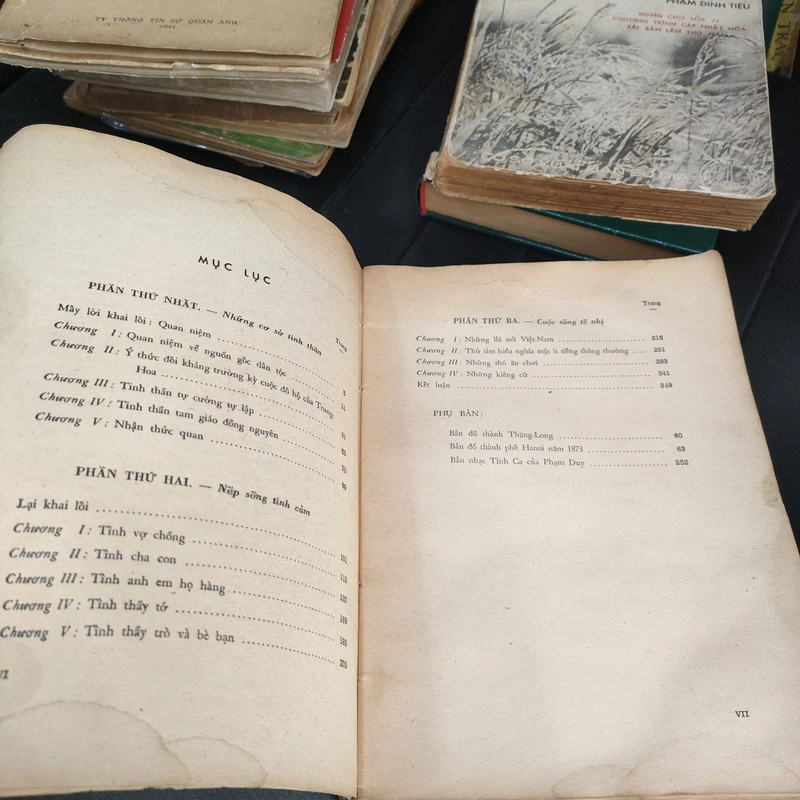 TY THÔNG TIN SỨ QUÁN ANH
1951
PHẠM ĐÌNH TIẾU
DÙNG CHO LỚP 11
CHƯƠNG TRÌNH CẬP NHẬT HÓA
TÁI BẢN LẦN THỨ
MỤC LỤC
Trang
PHẦN THỨ NHẤT. — Những cơ sở tinh thần
Mấy lời khai lối : Quan niệm
Chương I : Quan niệm về nguồn gốc dân tộc 5
Chương II : Ý thức đối kháng trường kỳ cuộc đô hộ của Trung-
Hoa 11
Chương III : Tinh thần tự cường tự lập
Chương IV : Tinh thần tam giáo đồng nguyên
Chương V : Nhận thức quan
PHẦN THỨ HAI. — Nếp sống tình cảm
Lại khai lối 101
Chương I : Tình vợ chồng 113
Chương II : Tình cha con 137
Chương III : Tình anh em họ hàng 169
Chương IV : Tình thầy tớ
Chương V : Tình thầy trò và bè bạn 203
VI
Trang
PHẦN THỨ BA. — Cuộc sống tế nhị
Chương I : Những lối nói Việt-Nam 215
Chương II : Thử tìm hiểu nghĩa một ít tiếng thông thường 251
Chương III : Những thú ăn chơi 293
Chương IV : Những kiêng cữ 341
Kết luận 349
PHỤ BẢN :
Bản đồ thành Thăng-Long 60
Bản đồ thành phố Hanoi năm 1873 63
Bản nhạc Tình Ca của Phạm Duy 252
VII